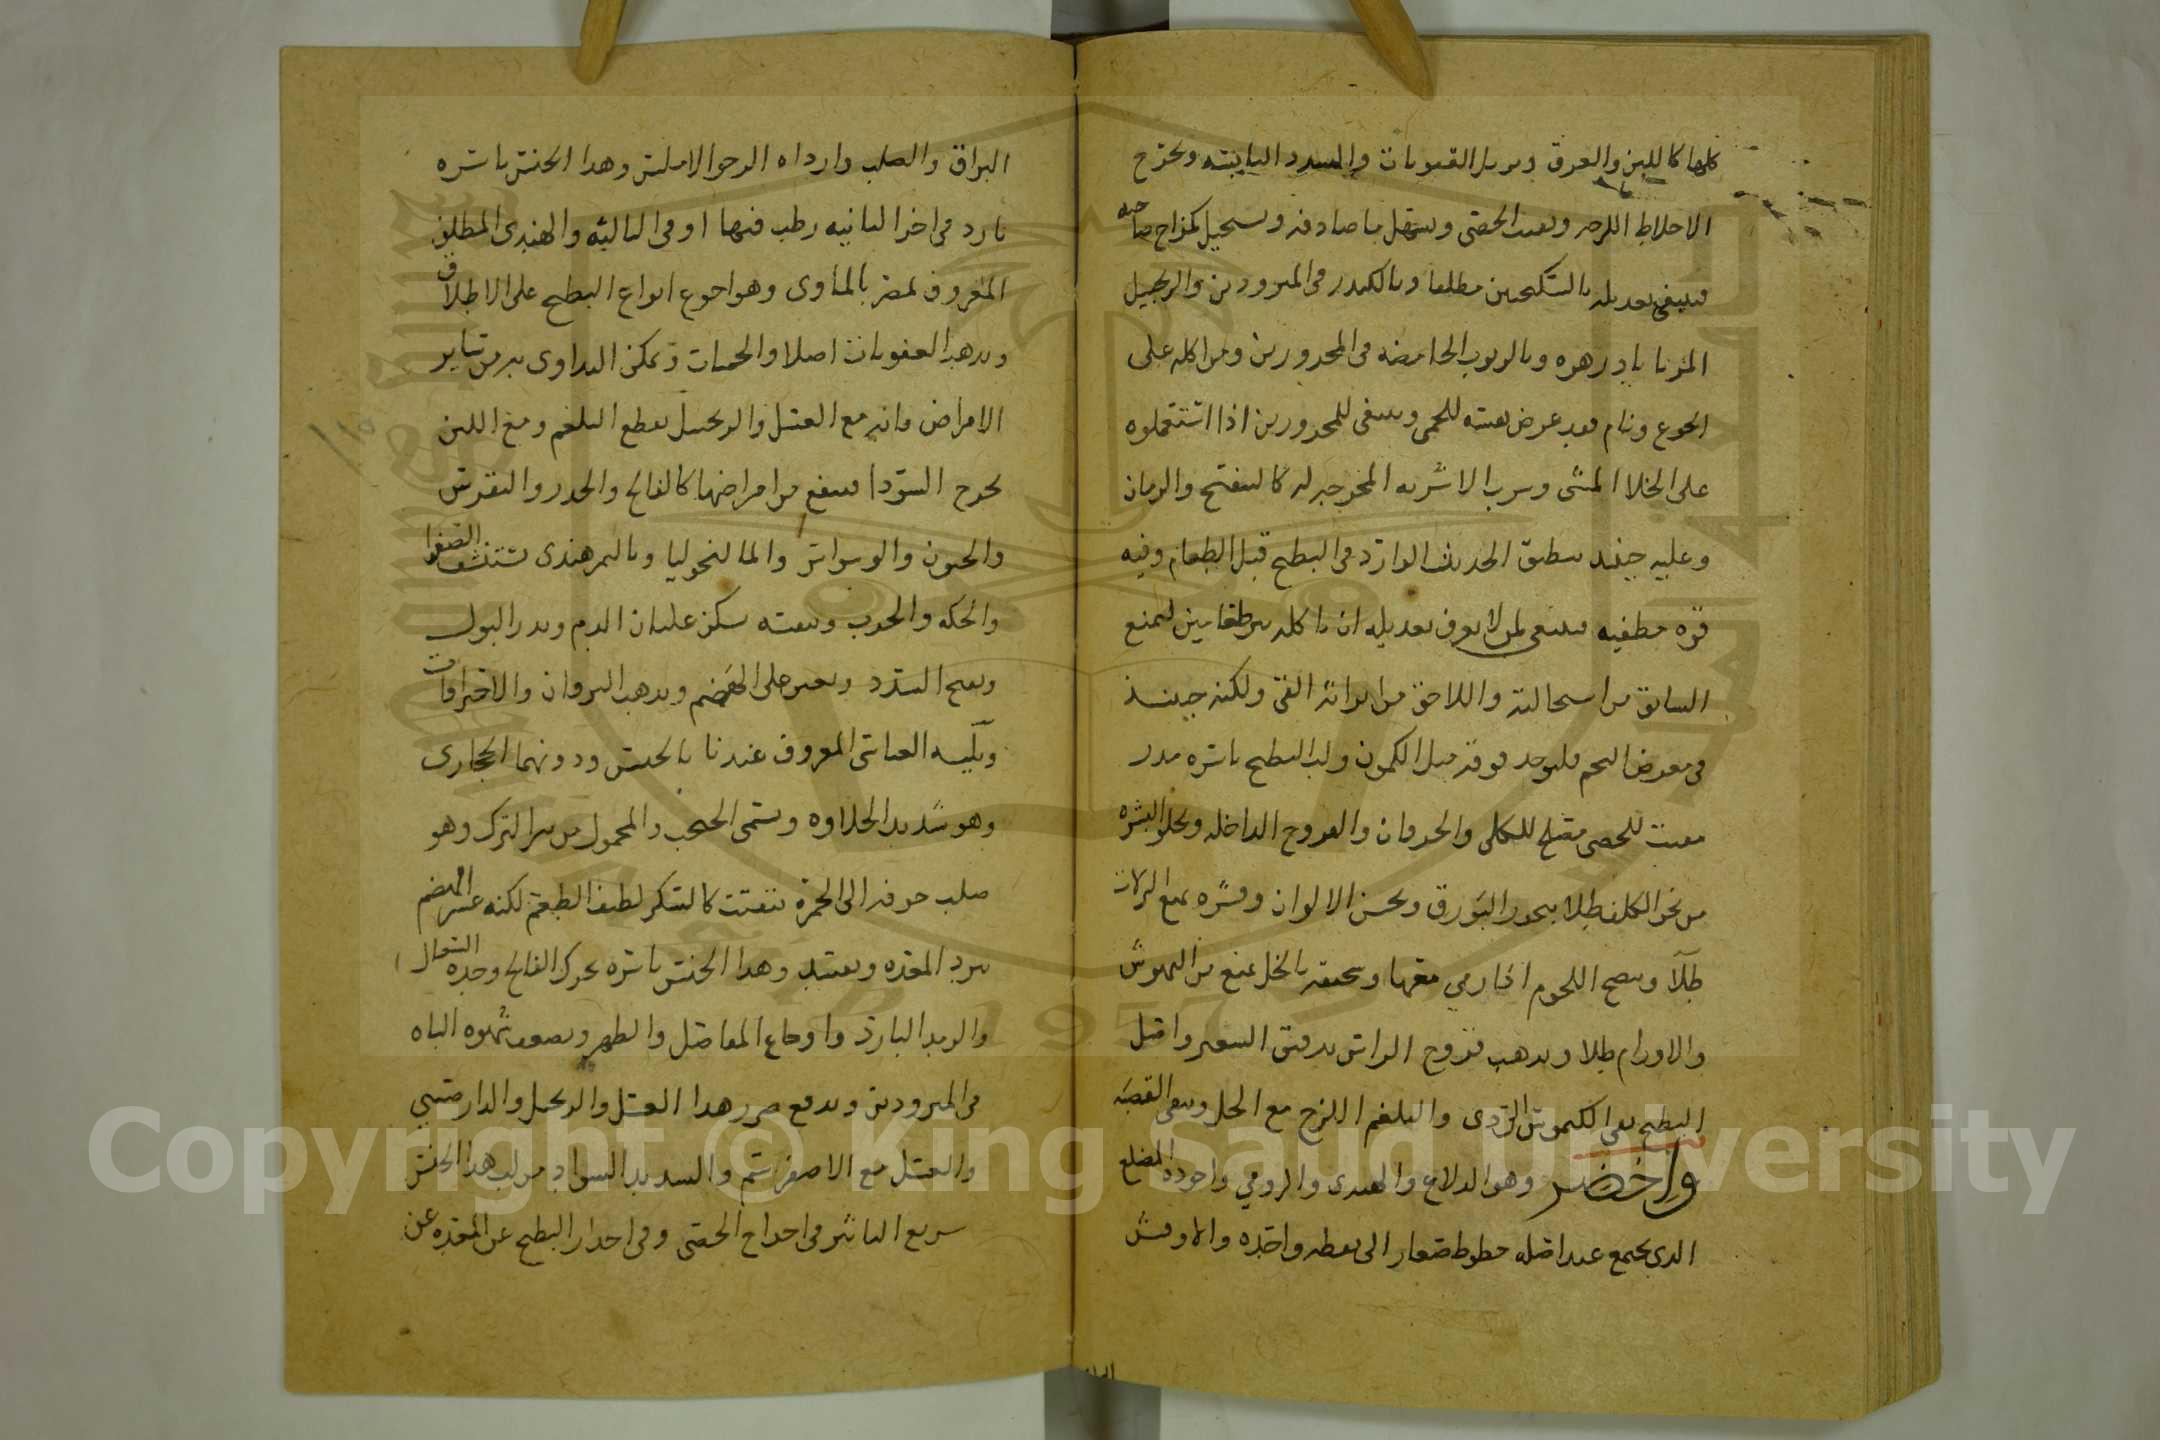 كلها كاللبن والعرق ويزيل العفونات والسدد اليابسه ويخرج
الاخلاط اللزجه ويفتت الحصى ويستحيل لمزاج صاحبه
فينبغي تعديله بالسكنجبين مطلقا وبالكندر في المبرودين والزنجبيل
المربا وبالربوب الحامضه في المحرورين ومن اكله على
الجوع ونام فقد عرض نفسه للحمى وينبغي للمحرورين اذا استعملوه
على الخلا المشى وشرب الاشربه المخرجه له كالبنفسج والرمان
وعليه حينئذ ينطبق الحديث الوارد في البطيخ قبل الطعام وفيه
قوه مطفيه فينبغي لمن لا يعرف تعديله ان ياكله بين طعامين ليمنع
السابق من استحالته واللاحق من اثارته القى ولكنه حينئذ
في معرض التخم فليوخذ فوقه مثل الكمون ولب البطيخ باسره مدر
مفتت للحصى مصلح للكلى والحرقان والقروح الداخله ويجلو البشره
من نحو الكلف طلا سيما البورق ويحسن الالوان وقشره يمنع النزلات
طلآ وينضج اللحوم اذا رمي معها وسحيقه بالخل يمنع من النهوش
والاورام طلا ويذهب قروح الراس بدقيق الشعير واصل
البطيخ ينقي الكيموس الردى والبلغم اللزج مع الخل وينقى القصبه
واخضر وهو الدلاع والهندى والرومي واجوده المضلع
الذى يجتمع عند اصله خطوط صغار الى نقطه واحده والاوقش
البراق والصلب وارداه الرخو الاملس وهذا الجنس باسره
بارد في اخر الثانيه رطب فيها او في الثالثه والهندى المطلق
المعروف بمصر بالماوى وهو اجود انواع البطيخ على الاطلاق
ويذهب العفونات اصلا والحميات ويمكن التداوى به من ساير
الامراض فانه مع العسل والزنجبيل يقطع البلغم ومع اللبن
يخرج السودا فينفع من امراضها كالفالج والخدر والنقرس
والجنون والوسواس والمالنخوليا وبالتمر هندى يستاصل الصفرا
والحكه والجرب وبنفسه يسكن غليان الدم ويدر البول
ويفتح السدد ويعين على الهضم ويذهب اليرقان والاحتراقات
ويليه العباسى المعروف عندنا بالحبش ودونهما الحجازى
وهو شديد الحلاوه ويسمى الحبحب والمحمول من بر الترك وهو
صلب جوفه الى الحمرة يتفتت كالسكر لطيف الطعم لكنه عسر الهضم
يبرد المعده ويفسد وهذا الجنس باسره يحرك الفالج وحده السعال
والربو البارد واوجاع المفاصل والظهر ويضعف شهوه الباه
في المبرودين ويدفع ضرر هذا العسل والزنجبيل والدارصيني
والعسل مع الاصفر سم والشديد السواد من لب هذا الجنس
سريع التاثير في اخراج الحصى وفي احدار البطيخ عن المعده عن
Copyright © King Saud University
1957